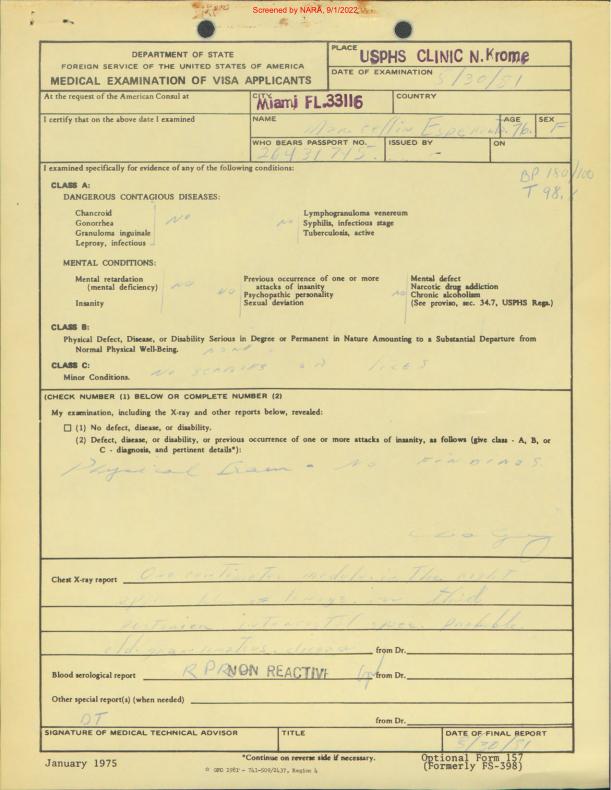 Screened by NARA, 9/1/2022
DEPARTMENT OF STATE
FOREIGN SERVICE OF THE UNITED STATES OF AMERICA
MEDICAL EXAMINATION OF VISA APPLICANTS
PLACE
USPHS CLINIC N.Krome
DATE OF EXAMINATION
5/30/81
At the request of the American Consul at
CITY
Miami FL.33116
COUNTRY
I certify that on the above date I examined
NAME
AGE
76.
SEX
F
WHO BEARS PASSPORT NO.
26431745.
ISSUED BY
-
ON
I examined specifically for evidence of any of the following conditions:
BP 180/100
T 98.
CLASS A:
DANGEROUS CONTAGIOUS DISEASES:
Chancroid
Gonorrhea
Granuloma inguinale
Leprosy, infectious
NO
NO
Lymphogranuloma venereum
Syphilis, infectious stage
Tuberculosis, active
MENTAL CONDITIONS:
Mental retardation
(mental deficiency)
Insanity
NO
NO
Previous occurrence of one or more
attacks of insanity
Psychopathic personality
Sexual deviation
NO
Mental defect
Narcotic drug addiction
Chronic alcoholism
(See proviso, sec. 34.7, USPHS Regs.)
CLASS B:
Physical Defect, Disease, or Disability Serious in Degree or Permanent in Nature Amounting to a Substantial Departure from
Normal Physical Well-Being.
NONE
CLASS C:
Minor Conditions.
NO SCABIES OR LICES
(CHECK NUMBER (1) BELOW OR COMPLETE NUMBER (2)
My examination, including the X-ray and other reports below, revealed:
☐ (1) No defect, disease, or disability.
(2) Defect, disease, or disability, or previous occurrence of one or more attacks of insanity, as follows (give class - A, B, or
C - diagnosis, and pertinent details*):
Physical Exam - NO FINDINGS.
Chest X-ray report
in the right
third
Probable
old granulomatous disease
from Dr.
Blood serological report
RPR NON REACTIVE
from Dr.
Other special report(s) (when needed)
DT
from Dr.
SIGNATURE OF MEDICAL TECHNICAL ADVISOR
TITLE
DATE OF FINAL REPORT
5/30/81
January 1975
*Continue on reverse side if necessary.
Optional Form 157
(Formerly FS-398)
☆ GPO 1981 - 741-509/2437, Region 4